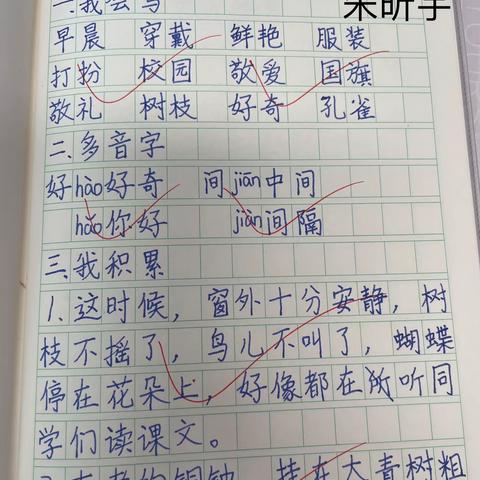 一.我会写
早晨 穿戴 鲜艳 服装
打扮 校园 敬爱 国旗
敬礼 树枝 好奇 孔雀
二.多音字
好hào好奇 间jiān中间
hǎo你好 jiàn间隔
三.我积累
1.这时候，窗外十分安静，树
枝不摇了，鸟儿不叫了，蝴蝶
停在花朵上，好像都在听同
学们读课文。
挂在大青树粗